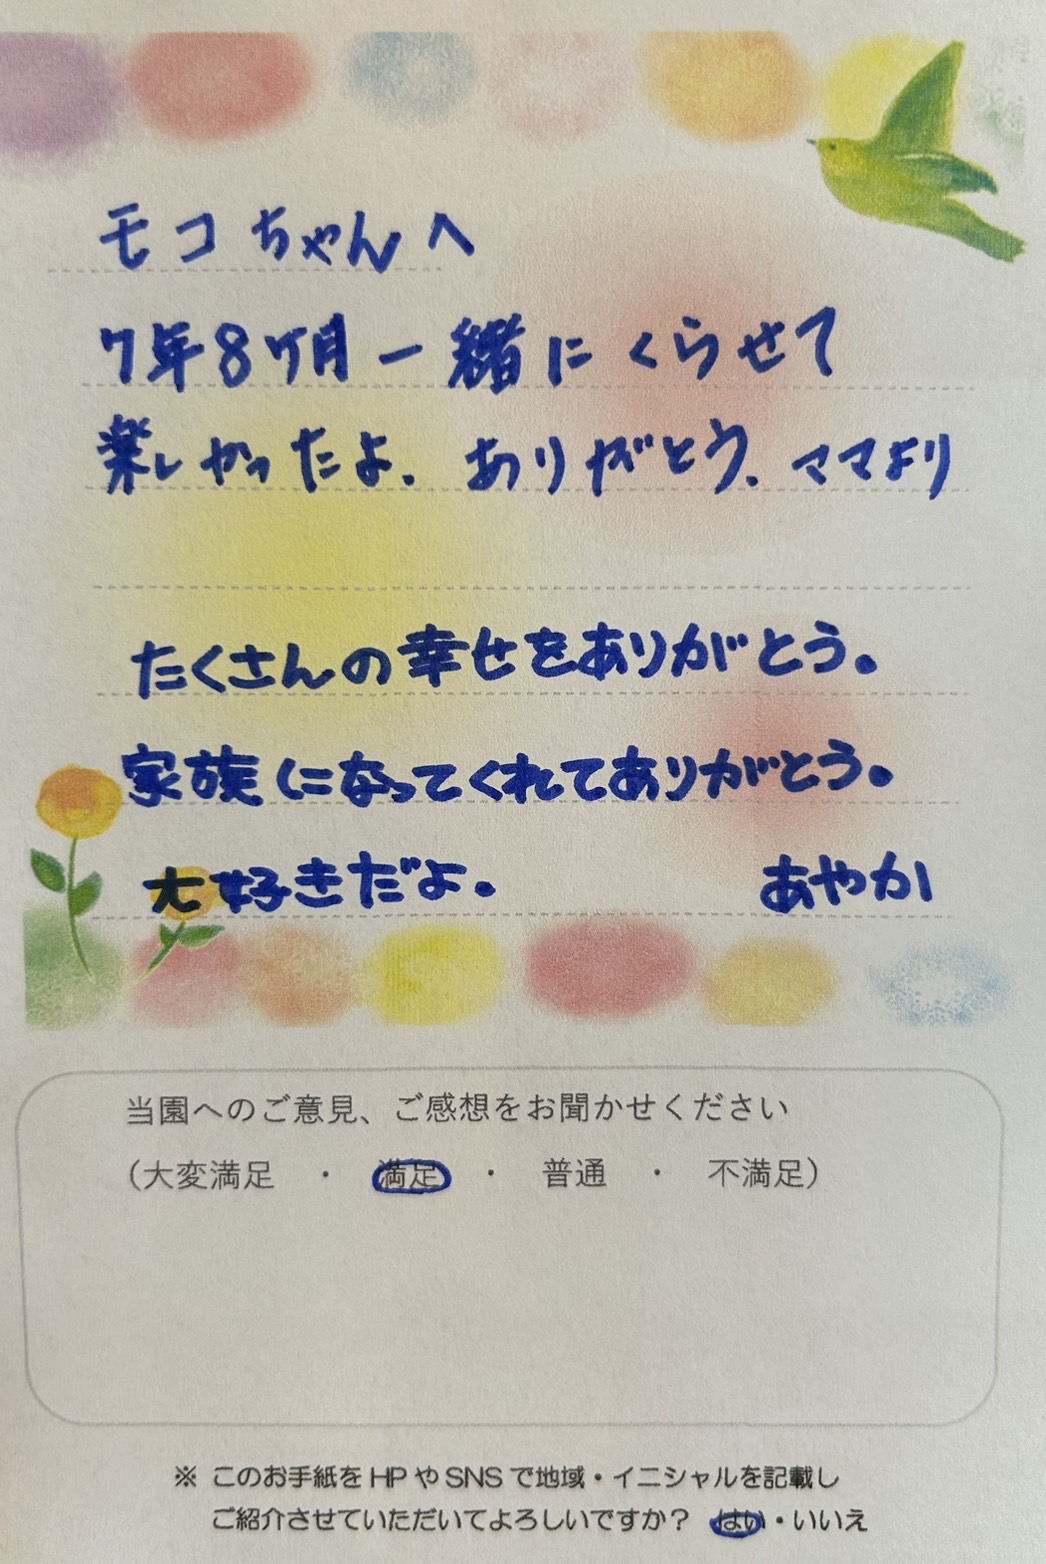 モコちゃんへ
7年8ヶ月一緒にくらせて
楽しかったよ。ありがとう。ママより
たくさんの幸せをありがとう。
家族になってくれてありがとう。
大好きだよ。 あやか
当園へのご意見、ご感想をお聞かせください
（大変満足 ・ 満足 ・ 普通 ・ 不満足）
※ このお手紙をHPやSNSで地域・イニシャルを記載し
ご紹介させていただいてよろしいですか？ はい・いいえ